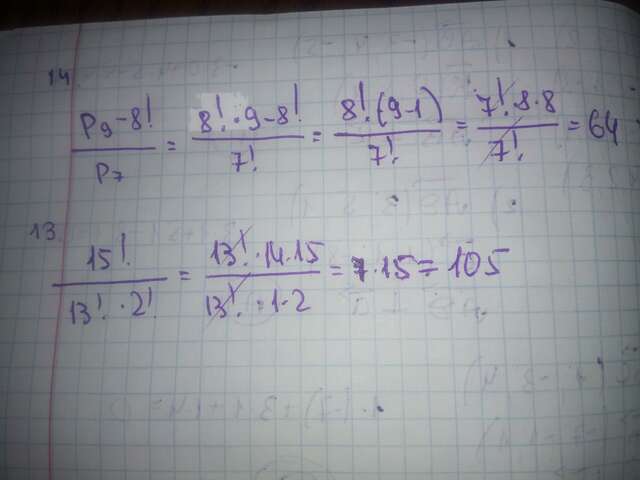 14
(P₉-8!)/P₇ = (8!·9-8!)/7! = (8!·(9-1))/7! = (7!·8·8)/7! = 64
13.
15!/(13!·2!) = (13!·14·15)/(13!·1·2) = 7·15 = 105